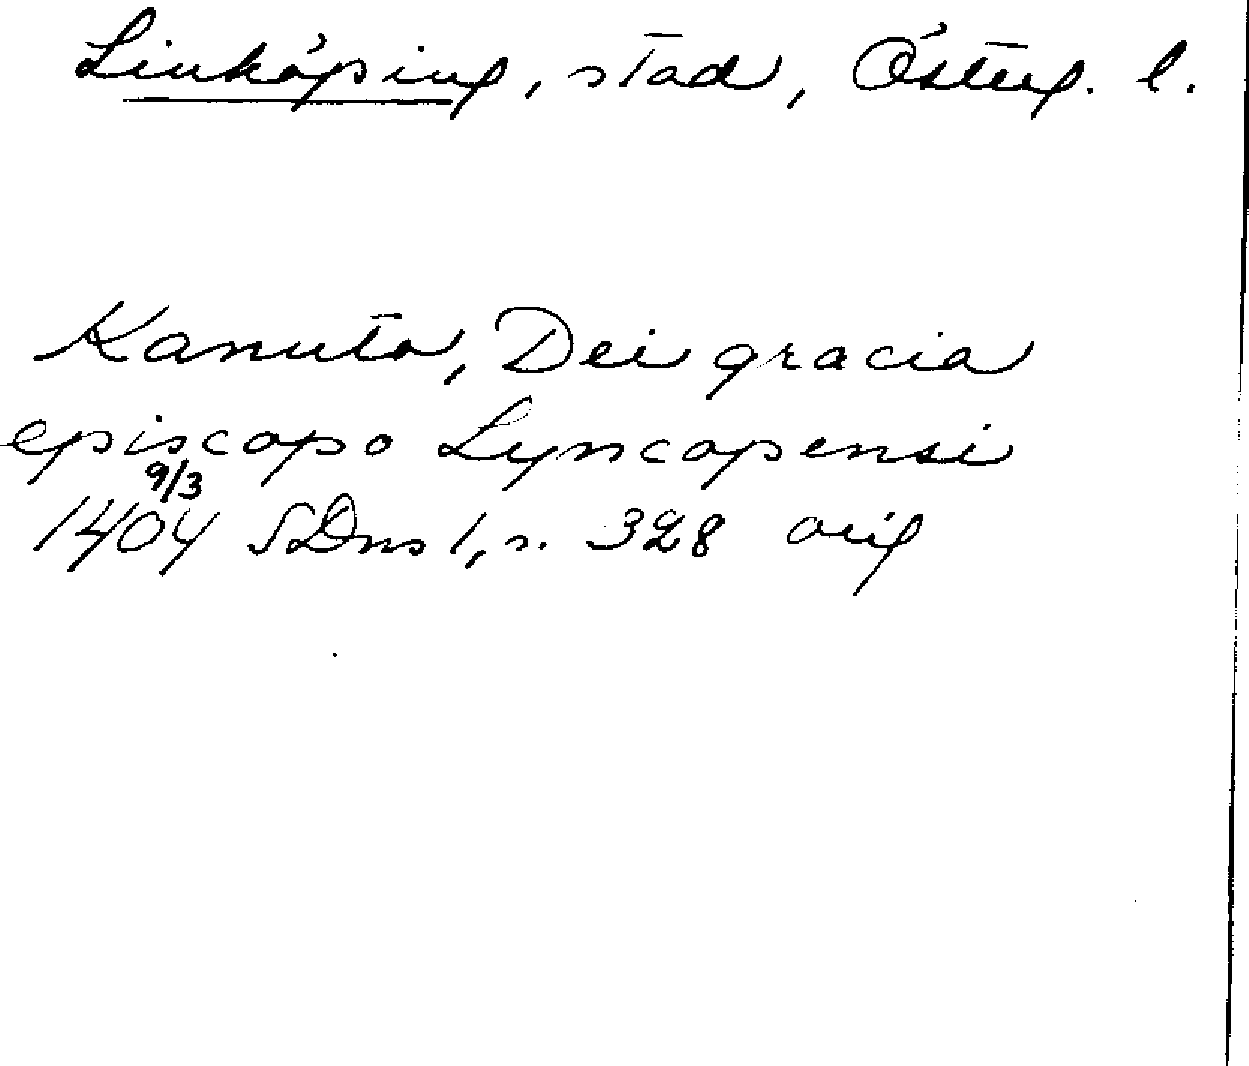 Linköping, stad, Österg. l.
Kanuto, Dei gracia
episcopo Lyncopensi
9/3
1404 SDns 1, s. 328 orig